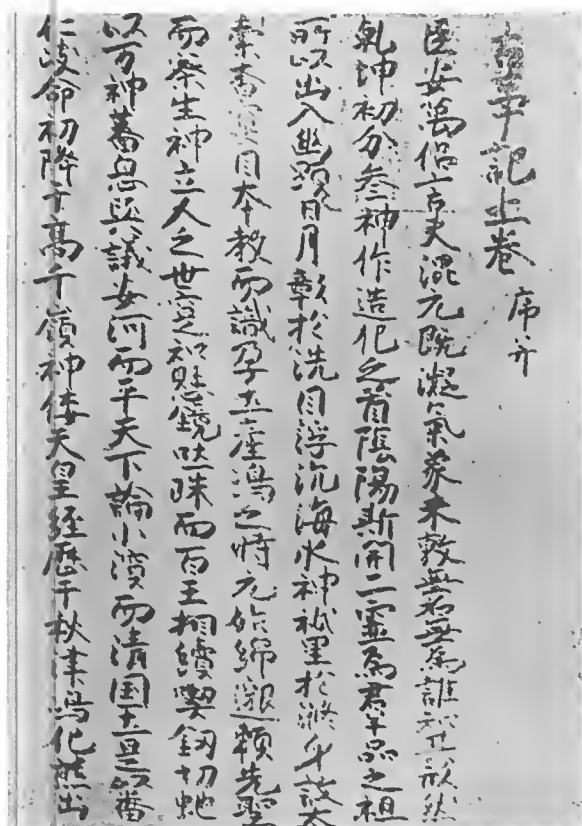 古事記上卷 序并
臣安萬侶言夫混元既凝氣象未敦無名無為誰知其形然
乾坤初分參神作造化之首陰陽斯開二靈為群品之祖
所以出入幽顯日月彰於洗目浮沉海水神祇呈於滌身故太
素杳冥因本教而識孕土產嶋之時元始綿邈頼先聖
而察生神立人之世寔知懸鏡吐珠而百王相續喫釼切虵
以万神蕃息與議安河而平天下論小濱而清国土是以番
仁岐命初降于高千嶺神倭天皇經歷于秋津嶋化熊出